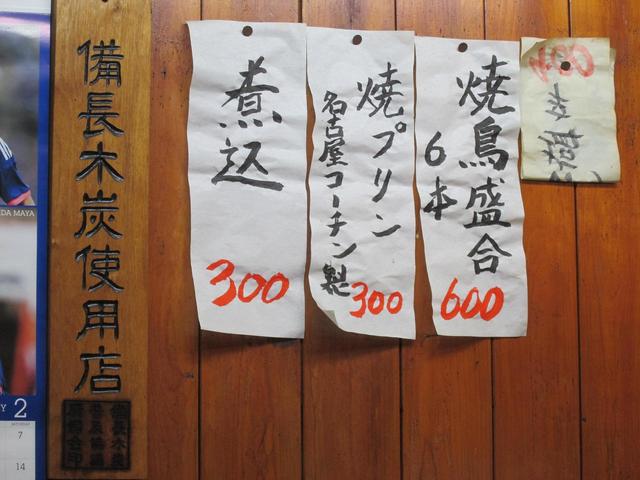 備長木炭使用店
煮込
300
焼プリン
名古屋コーチン製
300
焼鳥盛合
6本
600
DA MAYA
Y 2
SATURDAY
7
14